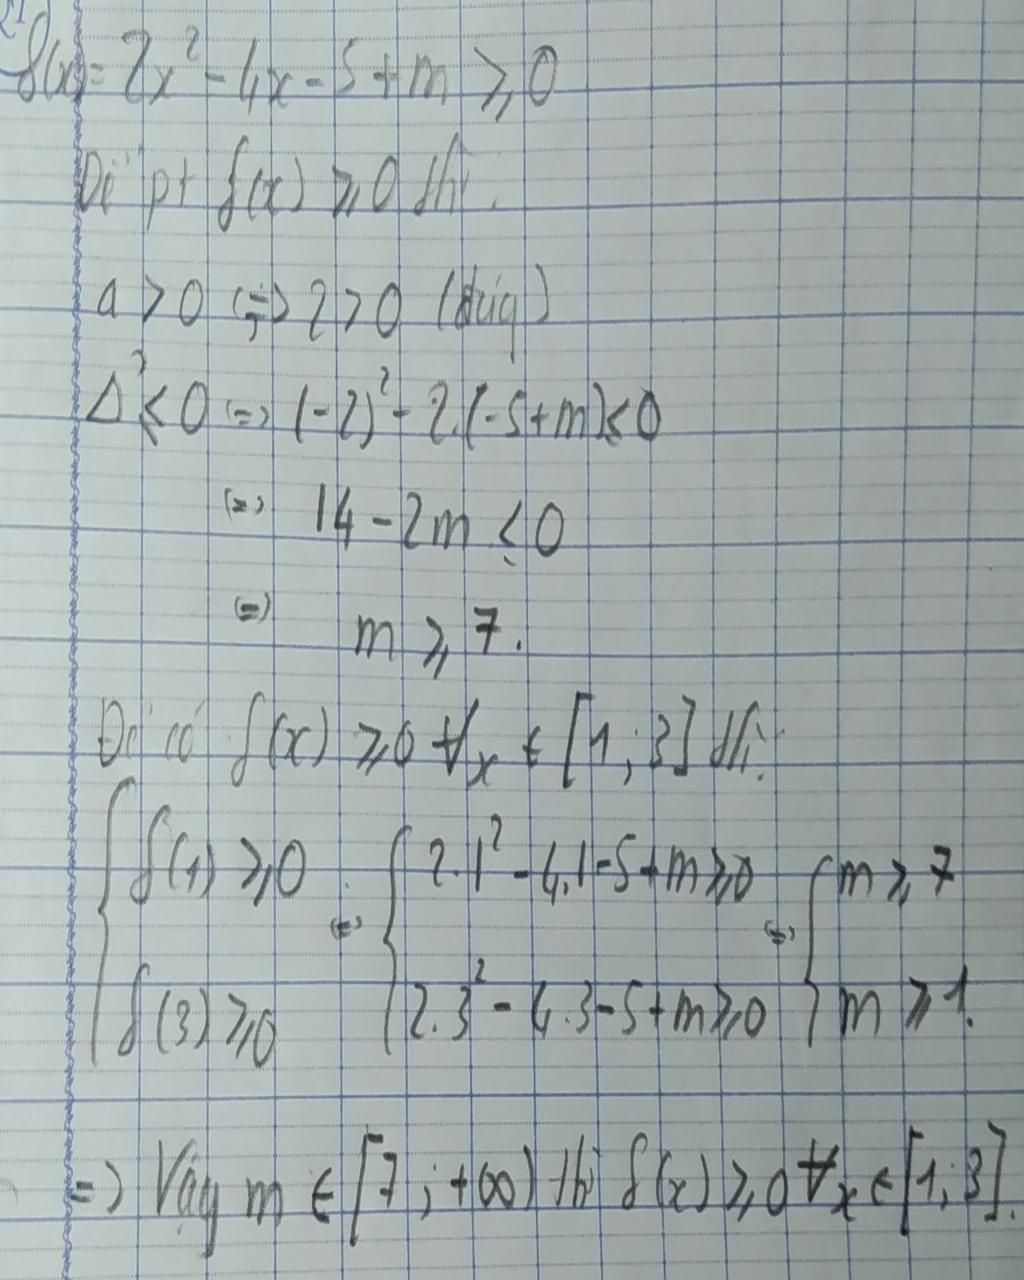 f(x) = 2x² - 4x - 5 + m ≥ 0
Để pt f(x) ≥ 0 thì.
a > 0 (=) 2 > 0 (đúng)
Δ' ≤ 0 (=) (-2)² - 2.(-5+m) ≤ 0
(=) 14 - 2m ≤ 0
(=) m ≥ 7.
Để có f(x) ≥ 0 ∀x ∈ [1; 3] thì:
{ f(1) ≥ 0 (=) { 2.1² - 4.1 - 5 + m ≥ 0 (=) { m ≥ 7
f(3) ≥ 0 2.3² - 4.3 - 5 + m ≥ 0 m ≥ 1.
=) Vậy m ∈ [7; +∞) thì f(x) ≥ 0 ∀x ∈ [1; 3].